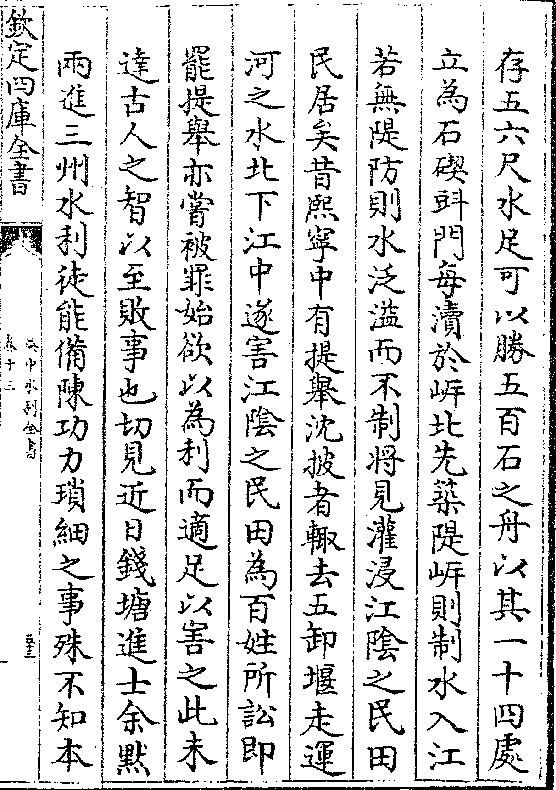 存五六尺水足可以勝五百石之舟以其一十四處
立為石碶㪷門每瀆於岸北先築隄岸則制水入江
若無隄防則水泛溢而不制將見灌浸江陰之民田
民居矣昔熙寧中有提舉沈披者輙去五卸堰走運
河之水北下江中遂害江陰之民田為百姓所訟即
罷提舉亦嘗被罪始欲以為利而適足以害之此未
達古人之智以至敗事也切見近日錢塘進士余默
兩進三州水利徒能備陳功力瑣細之事殊不知本
欽定四庫全書
吳中水利全書
卷十三